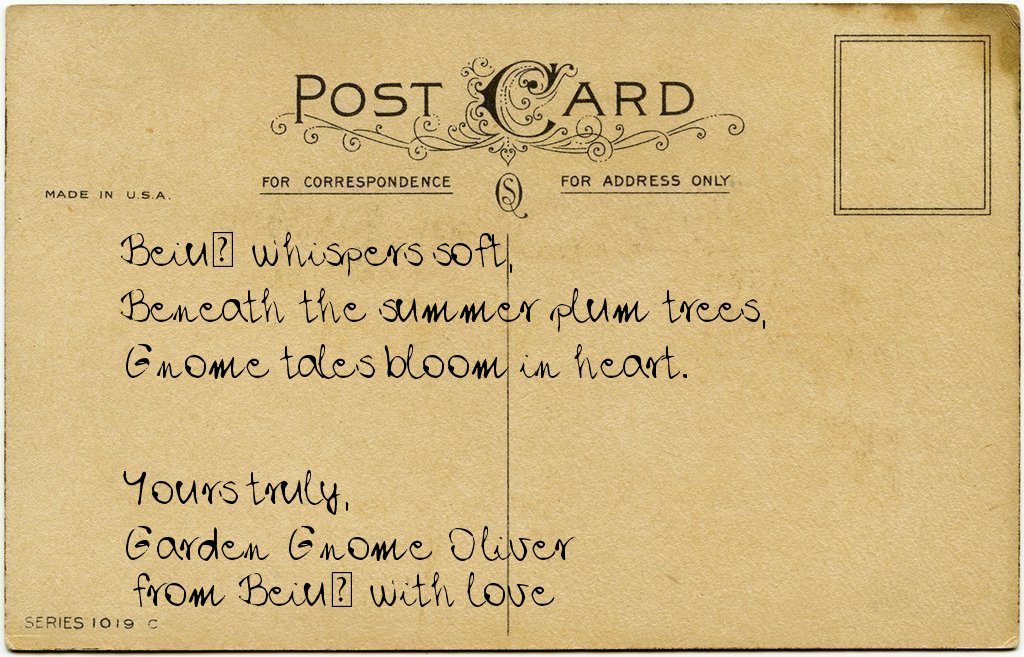 POST CARD
FOR CORRESPONDENCE
FOR ADDRESS ONLY
MADE IN U.S.A.
Beiu� whispers soft,
Beneath the summer plum trees,
Gnome tales bloom in heart.
Yours truly,
Garden Gnome Oliver
from Beiu� with love
SERIES 1019 C